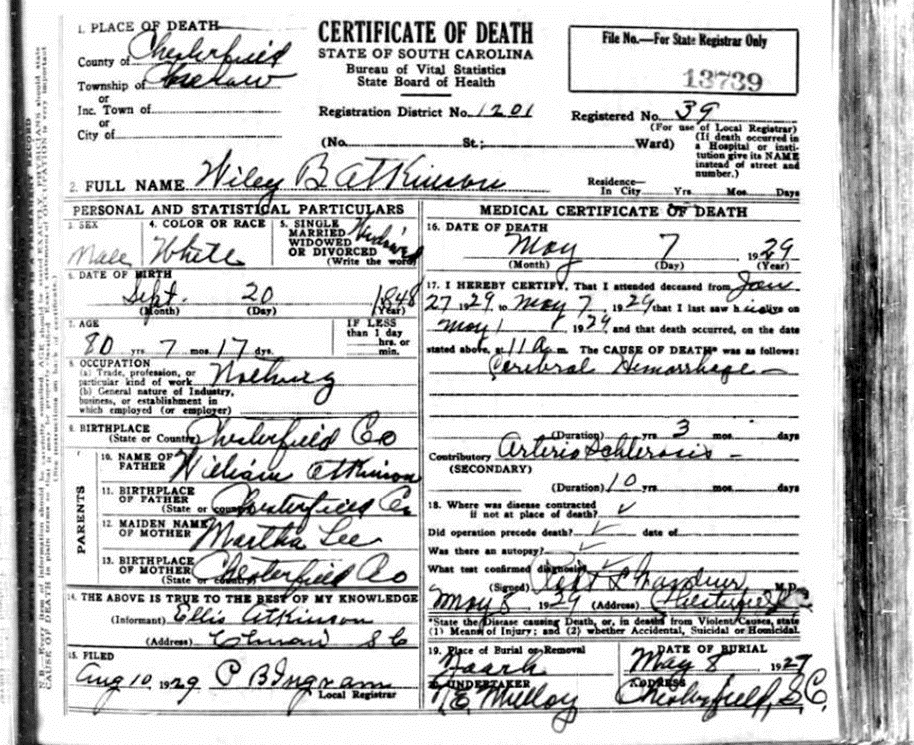 1. PLACE OF DEATH
County of Chesterfield
Township of Cheraw
or
Inc. Town of
or
City of
CERTIFICATE OF DEATH
STATE OF SOUTH CAROLINA
Bureau of Vital Statistics
State Board of Health
Registration District No. 1201
File No.—For State Registrar Only
13739
Registered No. 39
(For use of Local Registrar)
(No. St.; Ward)
(If death occurred in
a Hospital or insti-
tution give its NAME
instead of street and
number.)
2. FULL NAME Wiley B Atkinson
Residence—
In City Yrs. Mos. Days
PERSONAL AND STATISTICAL PARTICULARS
3. SEX
Male
4. COLOR OR RACE
White
5. SINGLE
MARRIED
WIDOWED
OR DIVORCED
(Write the word)
6. DATE OF BIRTH
Sept. 20 1848
(Month) (Day) (Year)
7. AGE
80 yrs. 7 mos. 17 dys.
IF LESS
than 1 day
hrs. or
min.
8. OCCUPATION
(a) Trade, profession, or
particular kind of work
(b) General nature of Industry,
business, or establishment in
which employed (or employer)
9. BIRTHPLACE
(State or Country) Chesterfield Co
PARENTS
10. NAME OF
FATHER William Atkinson
11. BIRTHPLACE
OF FATHER
(State or country) Chesterfield Co
12. MAIDEN NAME
OF MOTHER Martha Lee
13. BIRTHPLACE
OF MOTHER
(State or country) Chesterfield Co
14. THE ABOVE IS TRUE TO THE BEST OF MY KNOWLEDGE
(Informant) Ellis Atkinson
(Address) S C
15. FILED
Aug 10, 1929 P B Ingram
Local Registrar
MEDICAL CERTIFICATE OF DEATH
16. DATE OF DEATH
May 7 1929
(Month) (Day) (Year)
17. I HEREBY CERTIFY, That I attended deceased from Jan
27 1929, to May 7, 1929 that I last saw h alive on
May 1 1929 and that death occurred, on the date
stated above, at 11 a m. The CAUSE OF DEATH* was as follows:
Cerebral Hemorrhage —
(Duration) yrs. 3 mos. days
Contributory Arterio Schlerosis —
(SECONDARY)
(Duration) 10 yrs. mos. days
18. Where was disease contracted
if not at place of death?
Did operation precede death? date of
Was there an autopsy?
What test confirmed diagnosis?
(Signed) M.D.
May 8 1929 (Address) Chesterfield SC
*State the Disease causing Death, or, in deaths from Violent Causes, state
(1) Means of Injury; and (2) whether Accidental, Suicidal or Homicidal.
19. Place of Burial or Removal
DATE OF BURIAL
May 8 1927
20. UNDERTAKER
ADDRESS
Mulloy Chesterfield, S.C.